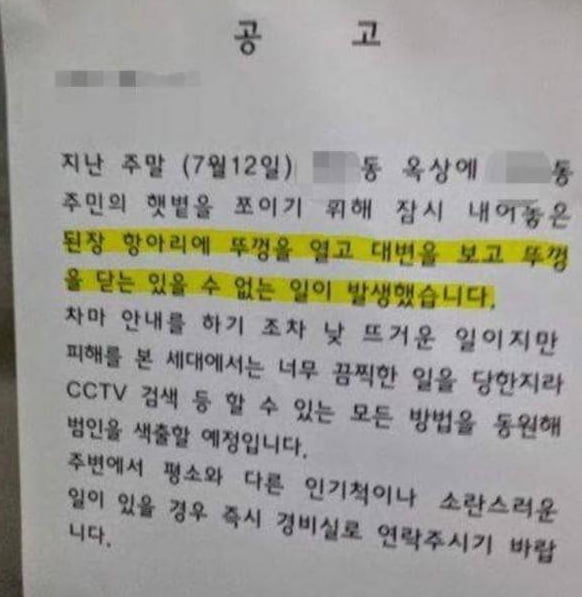 공 고
지난 주말 (7월12일) 동 옥상에 동
주민의 햇볕을 쪼이기 위해 잠시 내어놓은
된장 항아리에 뚜껑을 열고 대변을 보고 뚜껑
을 닫는 있을 수 없는 일이 발생했습니다.
차마 안내를 하기 조차 낯 뜨거운 일이지만
피해를 본 세대에서는 너무 끔찍한 일을 당한지라
CCTV 검색 등 할 수 있는 모든 방법을 동원해
범인을 색출할 예정입니다.
주변에서 평소와 다른 인기척이나 소란스러운
일이 있을 경우 즉시 경비실로 연락주시기 바랍
니다.